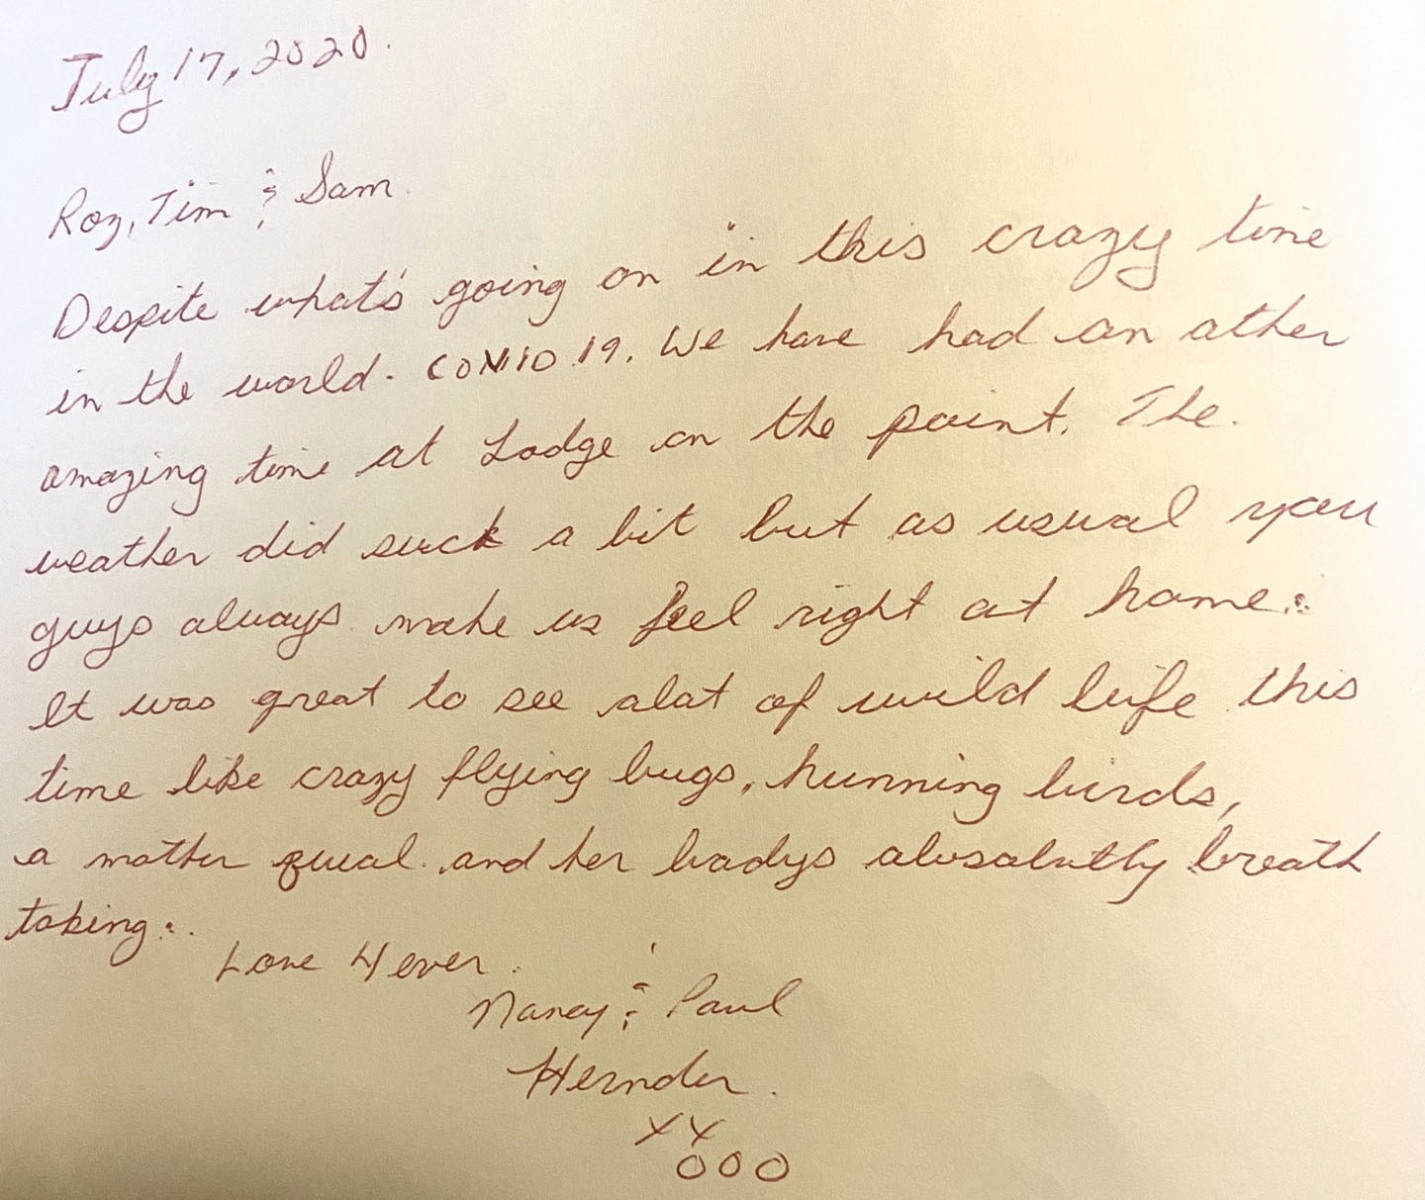 July 17, 2020.
Roz, Tim & Sam
Despite what's going on in this crazy time
in the world. COVID 19. We have had an other
amazing time at Lodge on the point. The
weather did suck a bit but as usual you
guys always make us feel right at home.
It was great to see alot of wild life this
time like crazy flying bugs, hunning birds,
a mother qual and her badys absolutly breath
taking.
Love 4 ever.
Nancy & Paul
Hernder.
XX
OOO